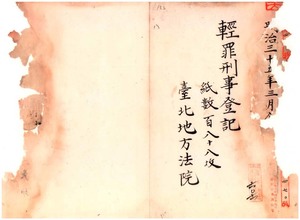 治三十五年三月
輕罪刑事登記
紙数百八十八枚
臺北地方法院